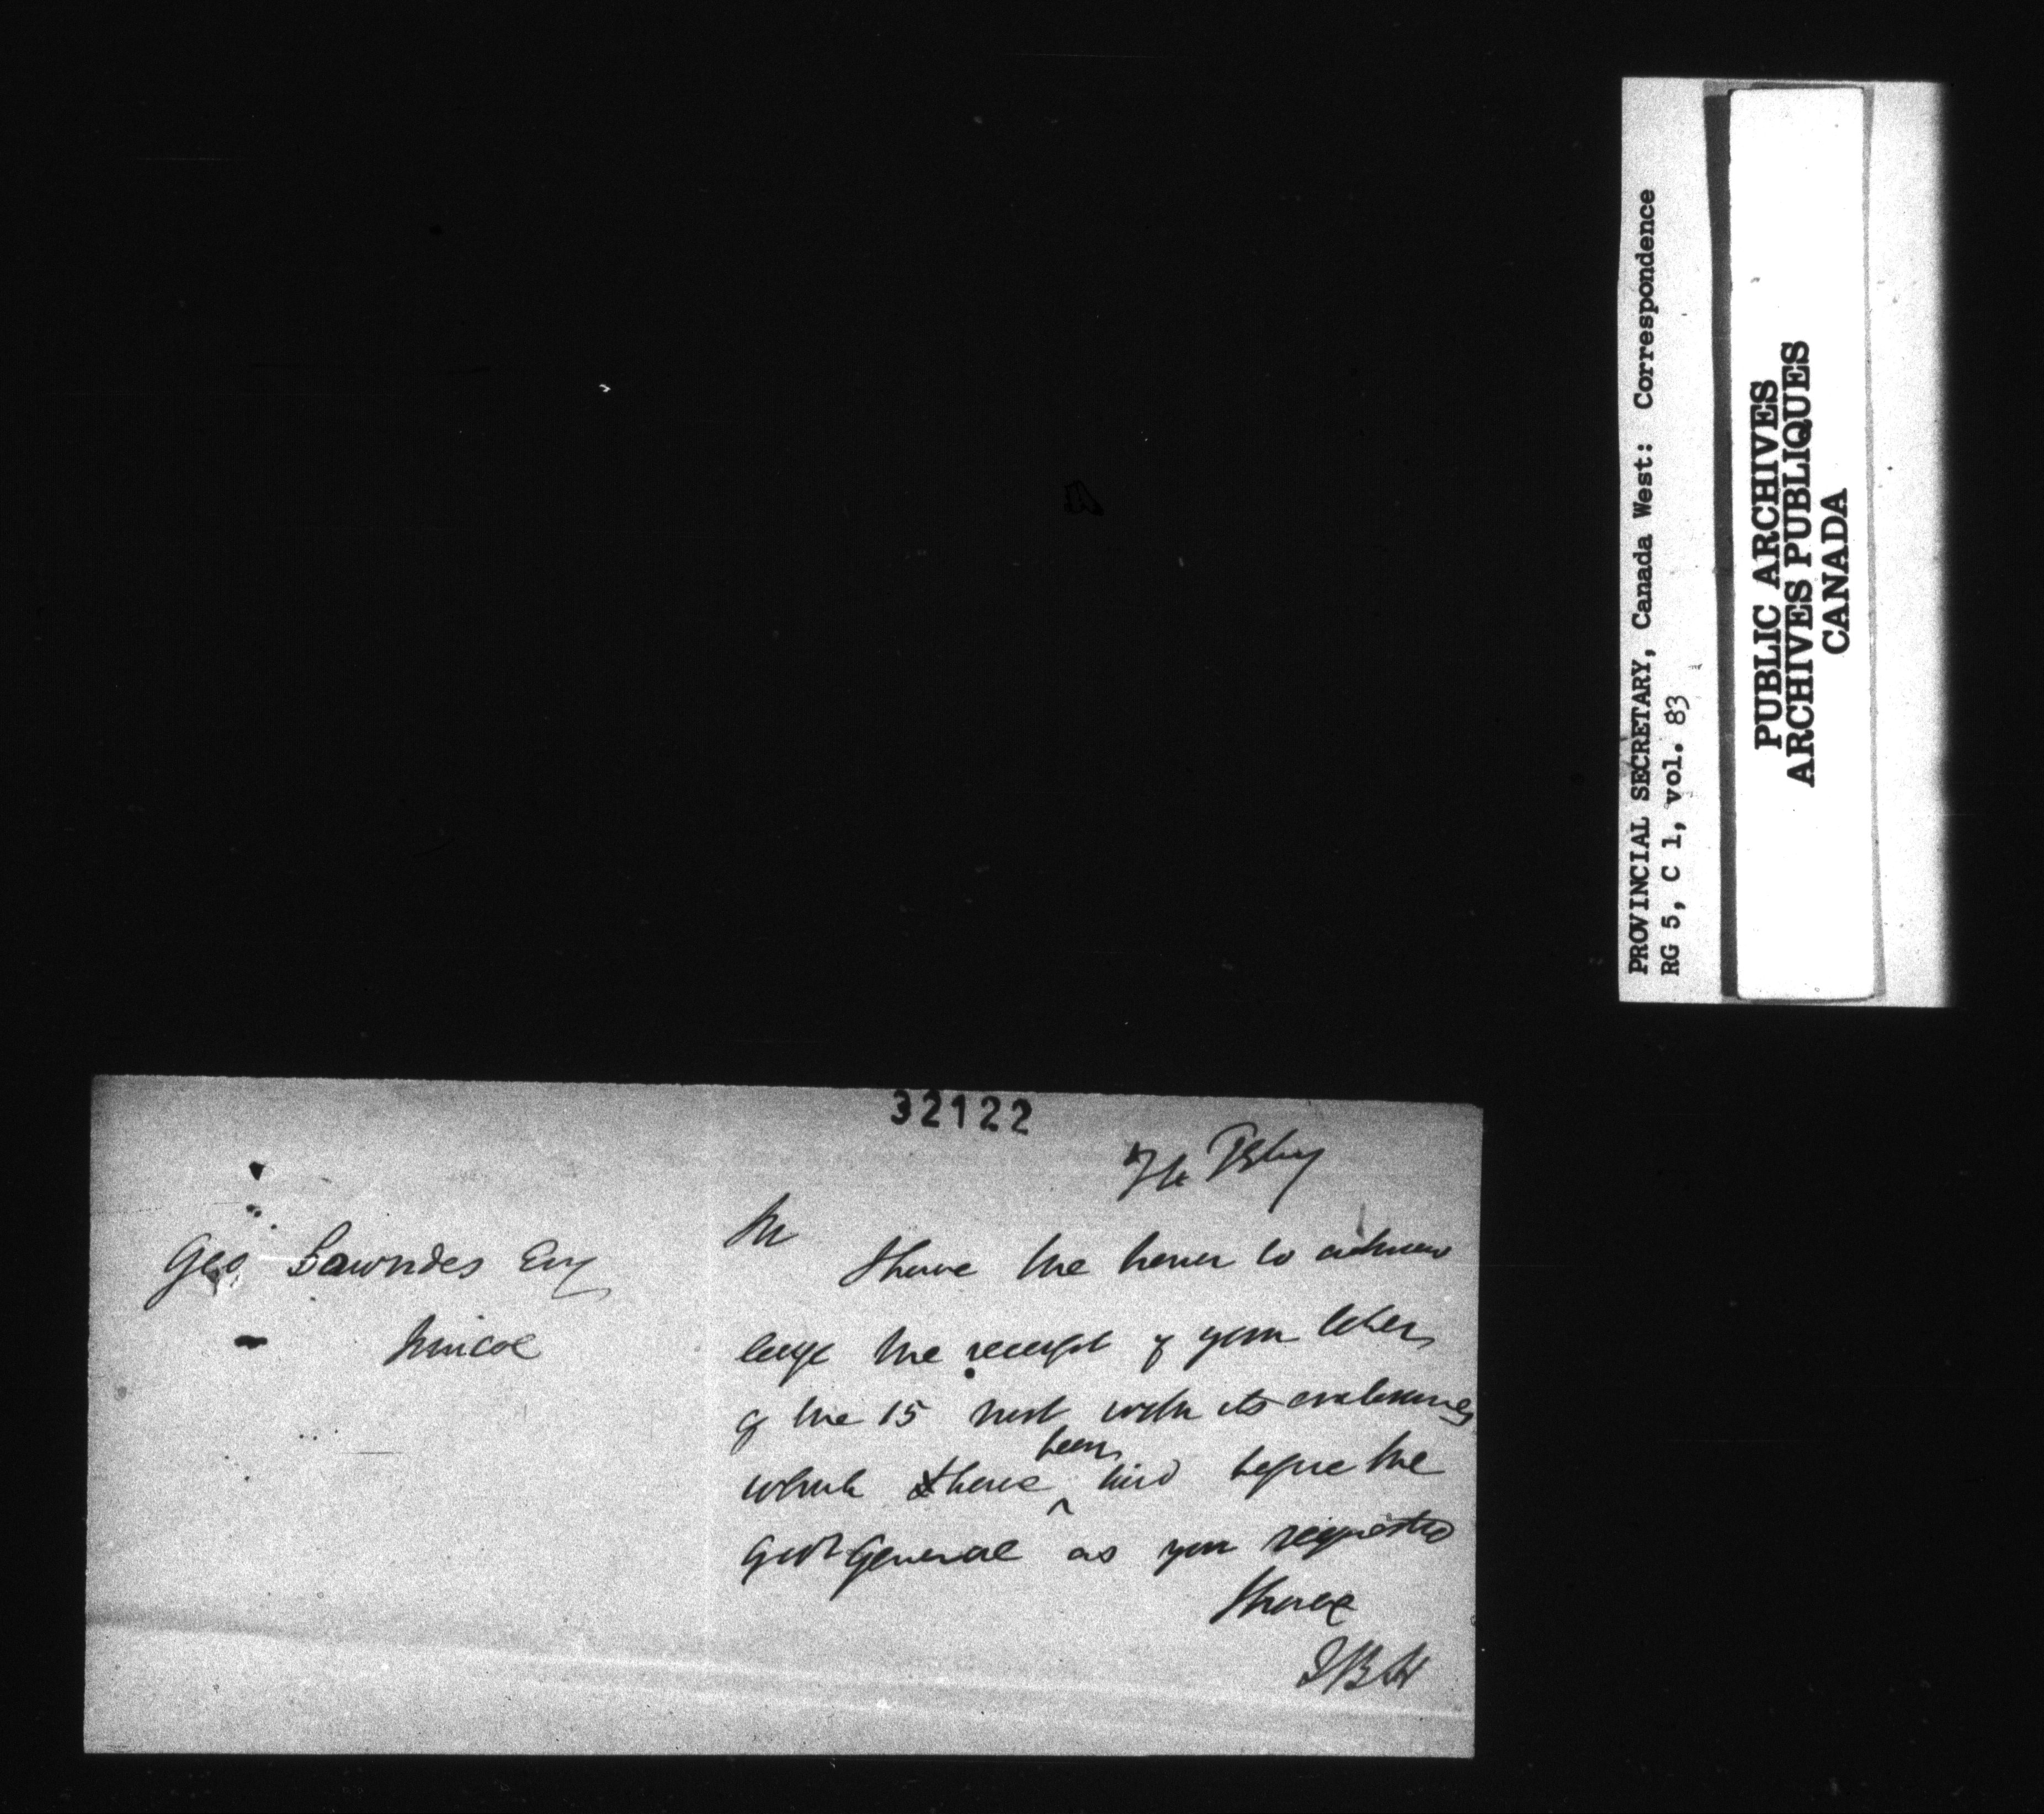 PROVINCIAL SECRETARY, Canada West: Correspondence
RG 5, C 1, vol. 83
PUBLIC ARCHIVES
ARCHIVES PUBLIQUES
CANADA
32122
Geo Lowndes Esq
Simcoe
Sir
I have the honor to acknow
lege the receipt of your letter
of the 15 inst with its enclosures
which I have been laid before the
Govr General as you requested
I have